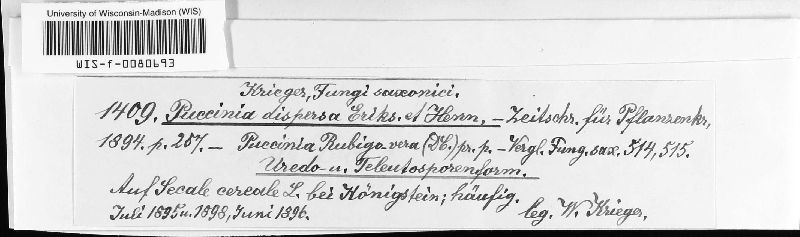 University of Wisconsin-Madison (WIS)
WIS-f-0080693
Krieger, Fungi saxonici.
1409. Puccinia dispersa Eriks. et Henn. – Zeitschr. für Pflanzenkr.,
1894. p. 257. – Puccinia Rubigo vera (DC.) pr. p. – Vergl. Fung. sax. 514, 515.
Uredo- u. Teleutosporenform.
Auf Secale cereale L. bei Königstein; häufig.
Juli 1895 u. 1898, Juni 1896.
leg. W. Krieger.